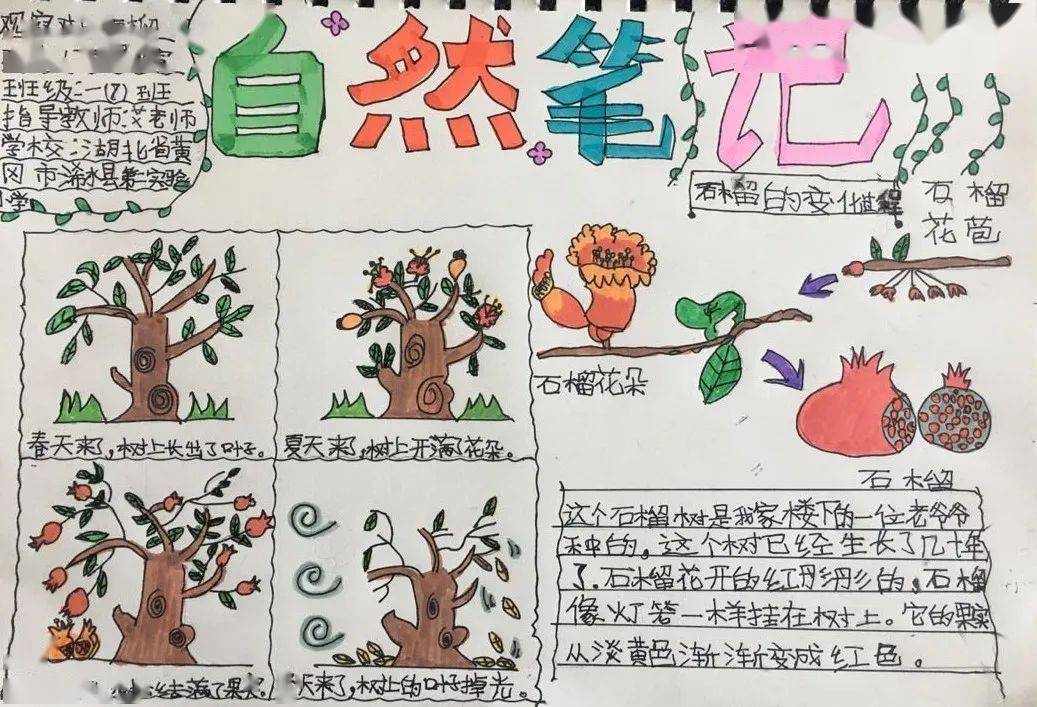 自然笔记
班级二(8)班
指导教师:艾老师
学校:湖北省黄
冈市浠水县第一实验
小学
石榴的变化过程
石榴
花苞
石榴花朵
石榴
春天来了,树上长出了叶子。
夏天来了,树上开满了花朵。
结满了果人。
天来了,树上的叶子掉光。
这个石榴树是我家楼下的一位老爷爷
种的。这个树已经生长了几十年
了.石榴花开的红彤彤的,石榴
像灯笼一样挂在树上。它的果实
从淡黄色渐渐变成红色。